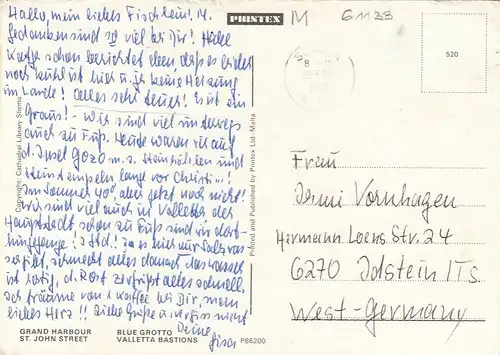 Hallo, mein liebes Fischlein! M.
Gedanken sind so viel bei Dir! Habe
Katja schon berichtet eben, daß es leider
noch kühl ist hier u. ja keine Heizung
im Lande! Alles sehr teuer! Es ist ein
Graus! - Wir sind viel unterwegs
auch zu Fuß. Heute waren wir auf
d. Insel Gozo m. s. Steinhöhlen und
Steintempeln lange vor Christi...!
Im Sommer 40°, aber jetzt noch nicht!
Wir sind viel auch in Valletta der
Hauptstadt schon zu Fuß sind wir dort-
hingegangen. 1 Std.! ja es hier nur Salzwas-
ser gibt, schmeckt alles danach, das Wasser
ist lästig, d. Rost zerfrißt alles schnell,
ich träume von 1 Kaffee bei Dir, mein
liebes Herz!! Liebe Grüße u. vergiß nicht
Deine
PRINTEX
M
G1133
520
Copyright: Cathedral Library Sliema
Printed and Published by Printex Ltd.-Malta
Frau
Vornhagen
Hermann Loens Str. 24
6270 Idstein / TS.
West-Germany
GRAND HARBOUR BLUE GROTTO
ST. JOHN STREET VALLETTA BASTIONS P86200